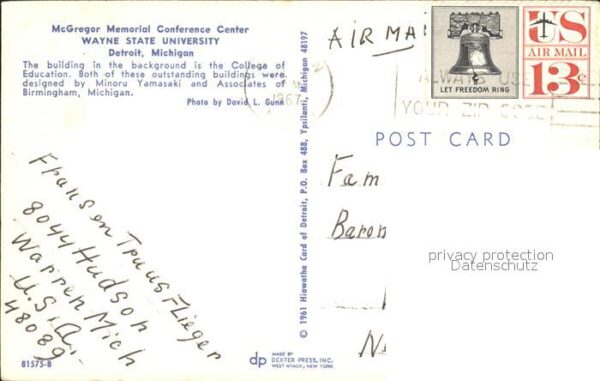 McGregor Memorial Conference Center
WAYNE STATE UNIVERSITY
Detroit, Michigan
The building in the background is the College of
Education. Both of these outstanding buildings were
designed by Minoru Yamasaki and Associates of
Birmingham, Michigan.
Photo by David L. Gunn
1967
AIR MAI
LET FREEDOM RING
US
AIR MAIL
13¢
ALWAYS USE
YOUR ZIP CODE
POST CARD
© 1961 Hiawatha Card of Detroit, P.O. Box 488, Ypsilanti, Michigan 48197
Fransen Traus Flieger
8044 Hudson
Warren Mich
U.S.A.
48089
Fam
Baron
N
privacy protection
Datenschutz
81575-B
dp
MADE BY
DEXTER PRESS, INC.
WEST NYACK, NEW YORK